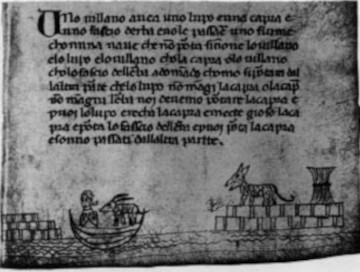 UNo uillano auea uno lupo euna capra e
uno fascio derba euole passare uno fiume
cho una naue che nõ porta sinone lo uillano
elo lupo elo uillano chola capra elo uillano
cholo fascio dellerba adomãdo chomo siportara dal
laltra parte chelo lupo nõ mãgi lacapra olacap̃
nõ mãgi lerba noi deuemo portare lacapra e
puoi lolupo erecha lacapra emecte gioso laca
pra eporta lo fascio dellerba epuoi porta lacapra
esonno passati dallaltra parte.